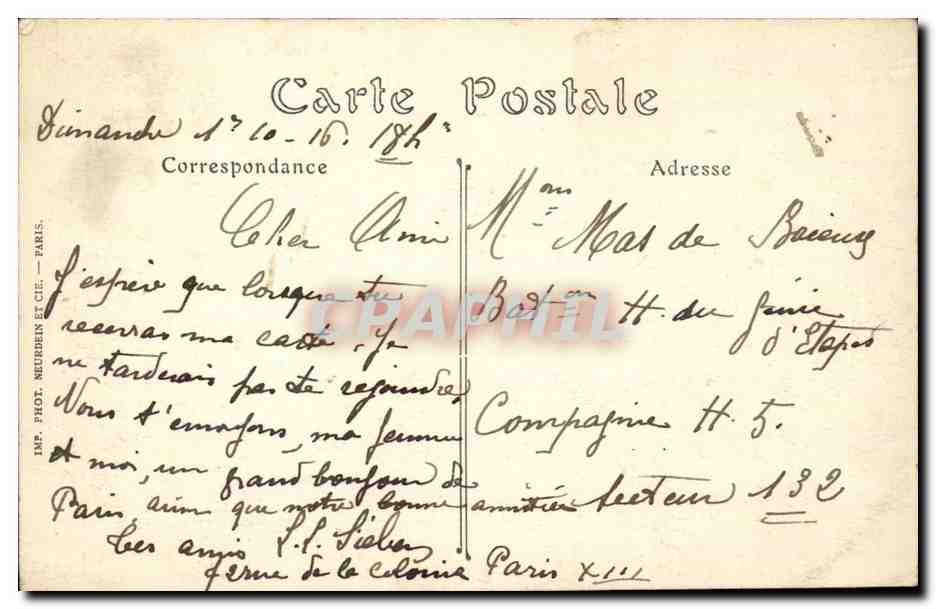 Carte Postale
Dimanche 1er 10-16. 18h
Correspondance
Cher Ami
J'espère que lorsque tu
recevras ma carte, Je
ne tarderais pas te rejoindre,
Nous t'envoyons, ma femme
et moi, un grand bonjour de
Paris, ainsi que notre bonne amitiée
tes amis L. L.
rue de la colonie Paris XIII
Adresse
Mon Mas de
Bat on H. du Génie
d'Etapes
Compagnie H. 5.
Secteur 132
IMP. PHOT. NEURDEIN ET CIE. — PARIS.
CPAPHIL